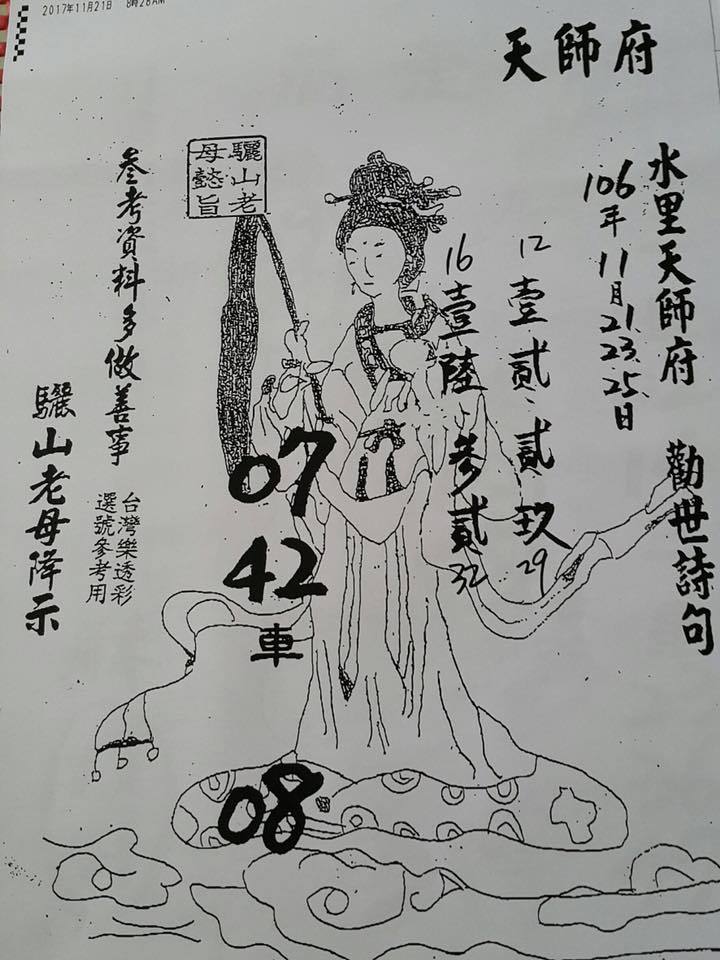 2017年11月21日 8時28AM
天師府
水里天師府 勸世詩句
106年11月21.23.25.日
12壹貳、貳玖29
16壹陸、參貳32
驪山老
母懿旨
07
42
車
08
參考資料多做善事
台灣樂透彩
選號參考用
驪山老母降示